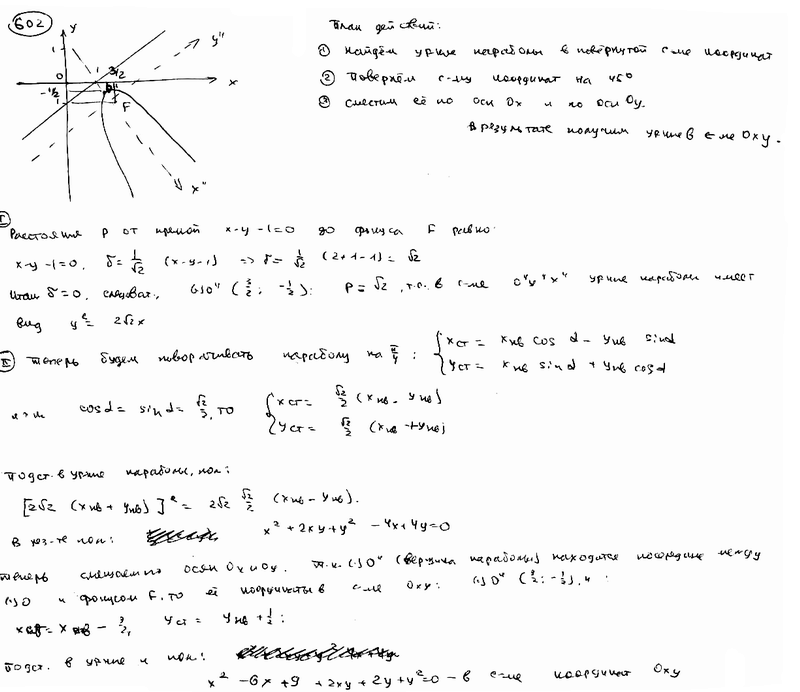 602
y
y''
1
0
1
3/2
x
-1/2
1
F
x''
План действий:
① Найдём ур-ние параболы в повёрнутой с-ме координат
② Повернём с-му координат на 45°
③ сместим её по оси Ox и по оси Oy.
В результате получим ур-ние в с-ме Oxy.
I
Расстояние p от прямой x-y-1=0 до фокуса F равно:
x-y-1=0, δ = 1/√2 (x-y-1) => δ = 1/√2 (2+1-1) = √2
Итак δ=0, следоват., (·)O'' (3/2; -1/2): p = √2, т.е. в с-ме O''y''x'' ур-ние параболы имеет
вид y² = 2√2x
II Теперь будем поворачивать параболу на π/4: { xст = xнв cos α - yнв sin α
yст = xнв sin α + yнв cos α
cos α = sin α = √2/2, то { xст = √2/2 (xнв - yнв)
yст = √2/2 (xнв + yнв)
Подст. в ур-ние параболы, пол:
[2√2 (xнв + yнв)]² = 2√2 √2/2 (xнв - yнв).
в рез-те пол: x² + 2xy + y² - 4x + 4y = 0
Теперь смещаем по осям Ox и Oy. Т.к. (·)O'' (вершина параболы) находится посередине между
(·)O и фокусом F, то её координаты в с-ме Oxy: (·)O'' (3/2; -1/2), и:
xст = xнв - 3/2, yст = yнв + 1/2:
Подст. в ур-ние и пол:
x² - 6x + 9 + 2xy + 2y + y² = 0 - в с-ме координат Oxy